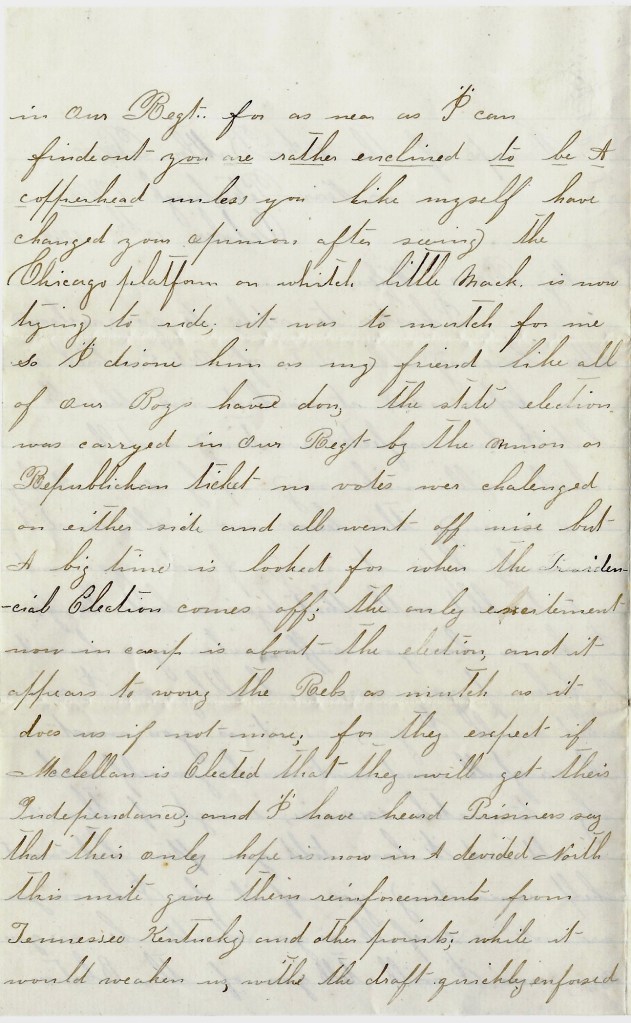 in our Regt.. for as near as "I" can
findeout you are rather enclined to be A
copperhead unless you like myself have
changed your opinion after seeing the
Chicago platform on whitch little Mack. is now
trying to ride; it was to mutch for me
so "I" disone him as my friend like all
of our Boys have don, the state election
was carryed in our Regt by the Union or
Republickan ticket no votes wer chalenged
on either side and all went off nise but
A big time is looked for when the
-cial Election comes off; the only exsitement
now in camp is about the election, and it
appears to worry the Rebs as mutch as it
does us if not more; for they expect if
Mcclellan is Elected that they will get their
Independance; and "I" have heard Prisiners say
that their only hope is now in A devided North
this mite give them reinforcements from
Tennessee Kentucky and other points; while it
would weaken us, withe the draft quickly enforsed